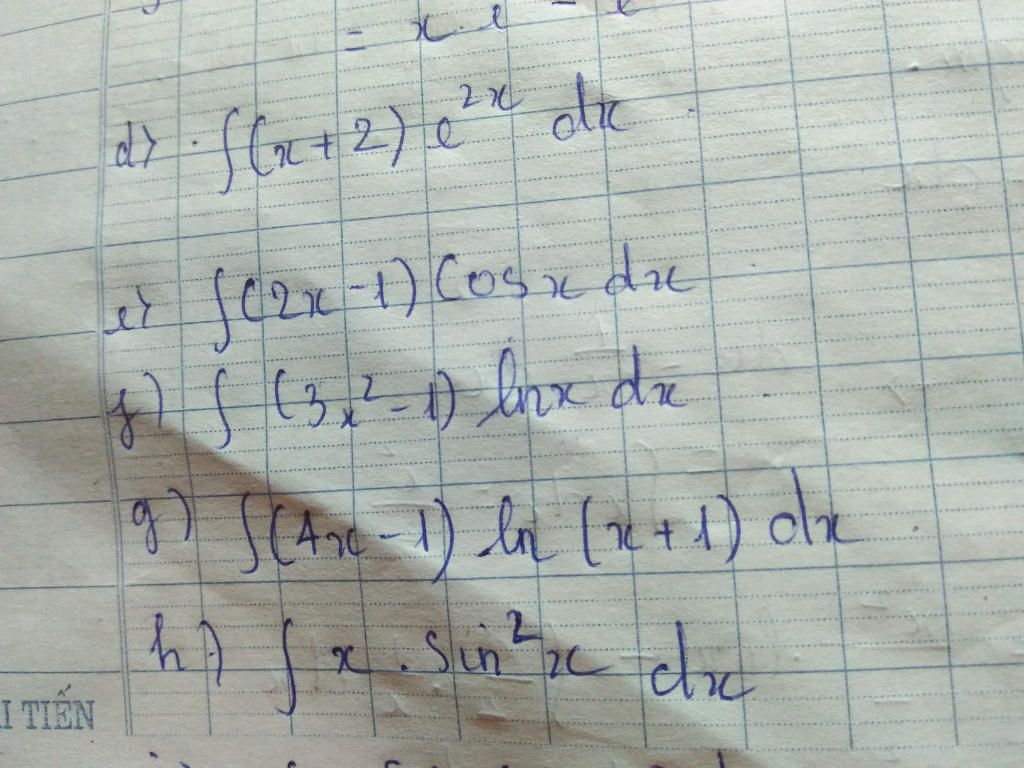 = x.e - e
d) ∫(x+2) e^{2x} dx
e) ∫(2x-1) cosx dx
f) ∫ (3x²-1) lnx dx
g) ∫(4x-1) ln (x+1) dx
h) ∫ x . sin²x dx
I TIẾN